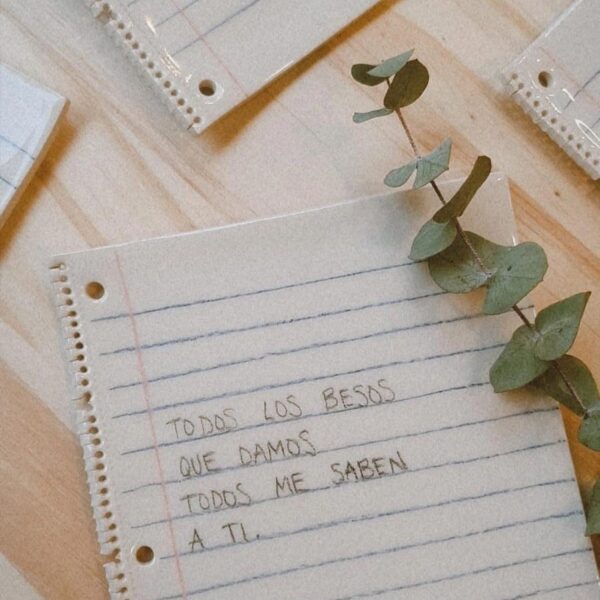 TODOS LOS BESOS
QUE DAMOS
TODOS ME SABEN
A TI.